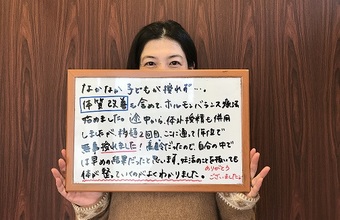 なかなか子どもが授れず…。
体質改善も含めて、ホルモンバランス療法
始めました。途中から、体外授精も併用
しましたが、移植2回目、ここに通って半年で
無事授れました！高齢だったので、自分の中で
は早めの結果だったと思います。妊活のことを抜いても
体が整っていくのがよくわかりました。
ありがとう
ございました